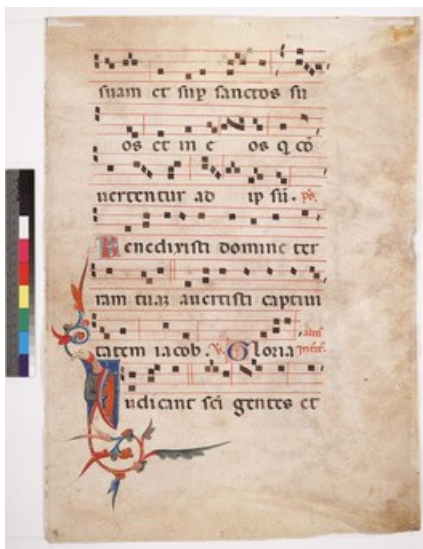 suam et sup sanctos su
os et in e os q cō
uertentur ad ip sū. ps.
Benedixisti domine ter
ram tuaz auertisti captiui
tatem iacob. V Gloria
udicant sci gentes et